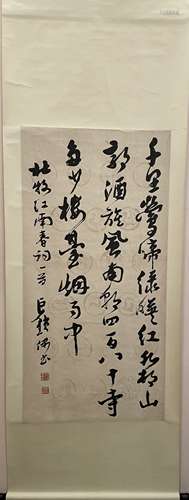 千里鶯啼綠映紅水村山
郭酒旗風南朝四百八十寺
多少樓臺烟雨中
杜牧江南春詞一首